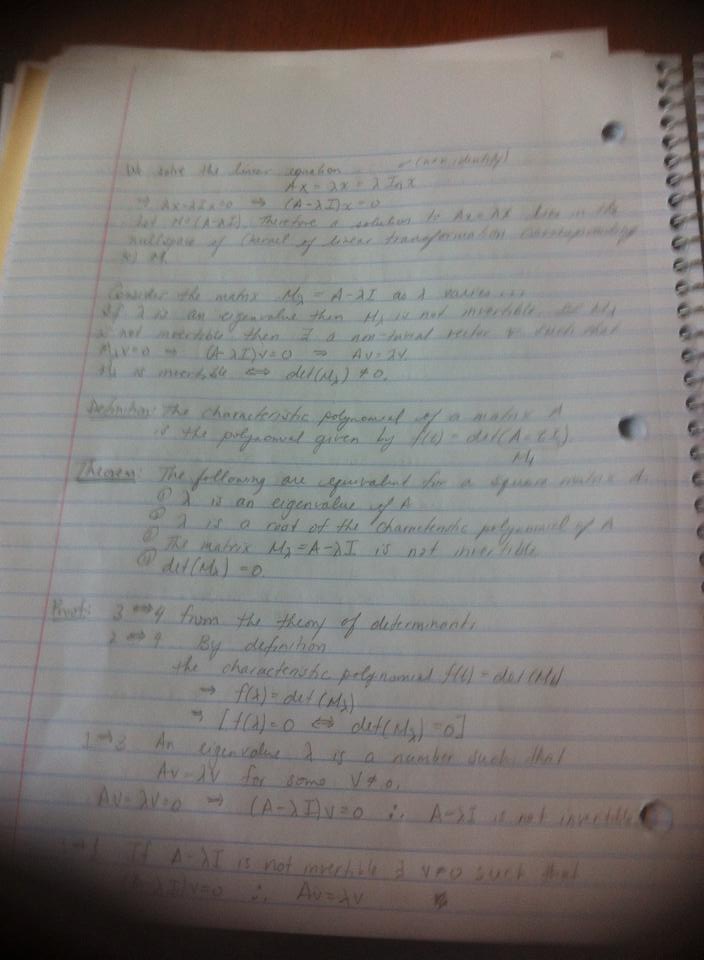 We solve the linear equation (n×n identity)
Ax = λx = λ Inx
⇒ Ax-λIx=0 ⇒ (A-λI)x=0
Let M=(A-λI). Therefore a solution to Ax=λx lies in the
nullspace of (kernel of linear transformation corresponding
to) M.
Consider the matrix Mλ = A-λI as λ varies ...
If λ is an eigenvalue then Mλ is not invertible. If Mλ
is not invertible then ∃ a non-trivial vector v such that
Mλv=0 ⇒ (A-λI)v=0 ⇒ Av=λv
Mλ is invertible ⟺ det(Mλ) ≠ 0.
Definition: The characteristic polynomial of a matrix A
is the polynomial given by f(t) = det(A-tI).
Mt
Theorem: The following are equivalent for a square matrix A.
① λ is an eigenvalue of A
② λ is a root of the characteristic polynomial of A
③ The matrix Mλ = A-λI is not invertible
④ det(Mλ) = 0.
Proof: 3 ⟺ 4 from the theory of determinants
2 ⟺ 4 By definition
the characteristic polynomial f(t) = det(Mt)
⇒ f(λ) = det(Mλ)
⇒ [f(λ)=0 ⟺ det(Mλ)=0]
1⇒3 An eigenvalue λ is a number such that
Av=λv for some V≠0.
Av-λv=0 ⇒ (A-λI)v=0 ∴ A-λI is not invertible
If A-λI is not invertible ∃ v≠0 such that
λI)v=0 ∴ Av=λv